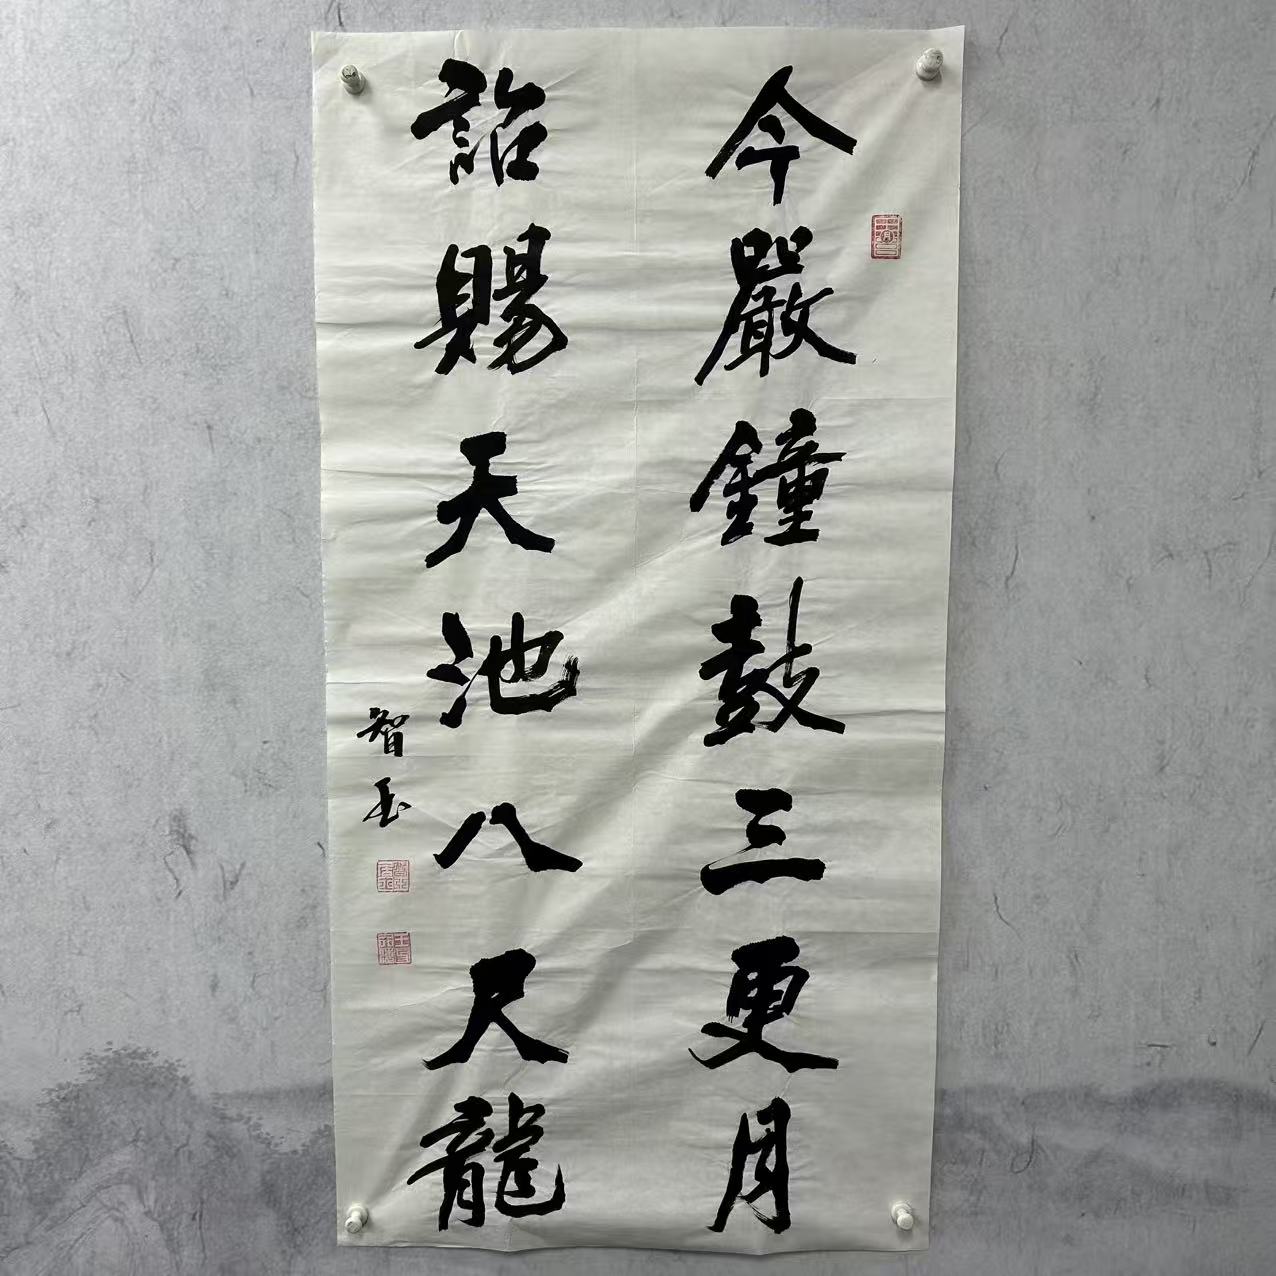 今嚴鐘鼓三更月
詔賜天池八尺龍
智玉